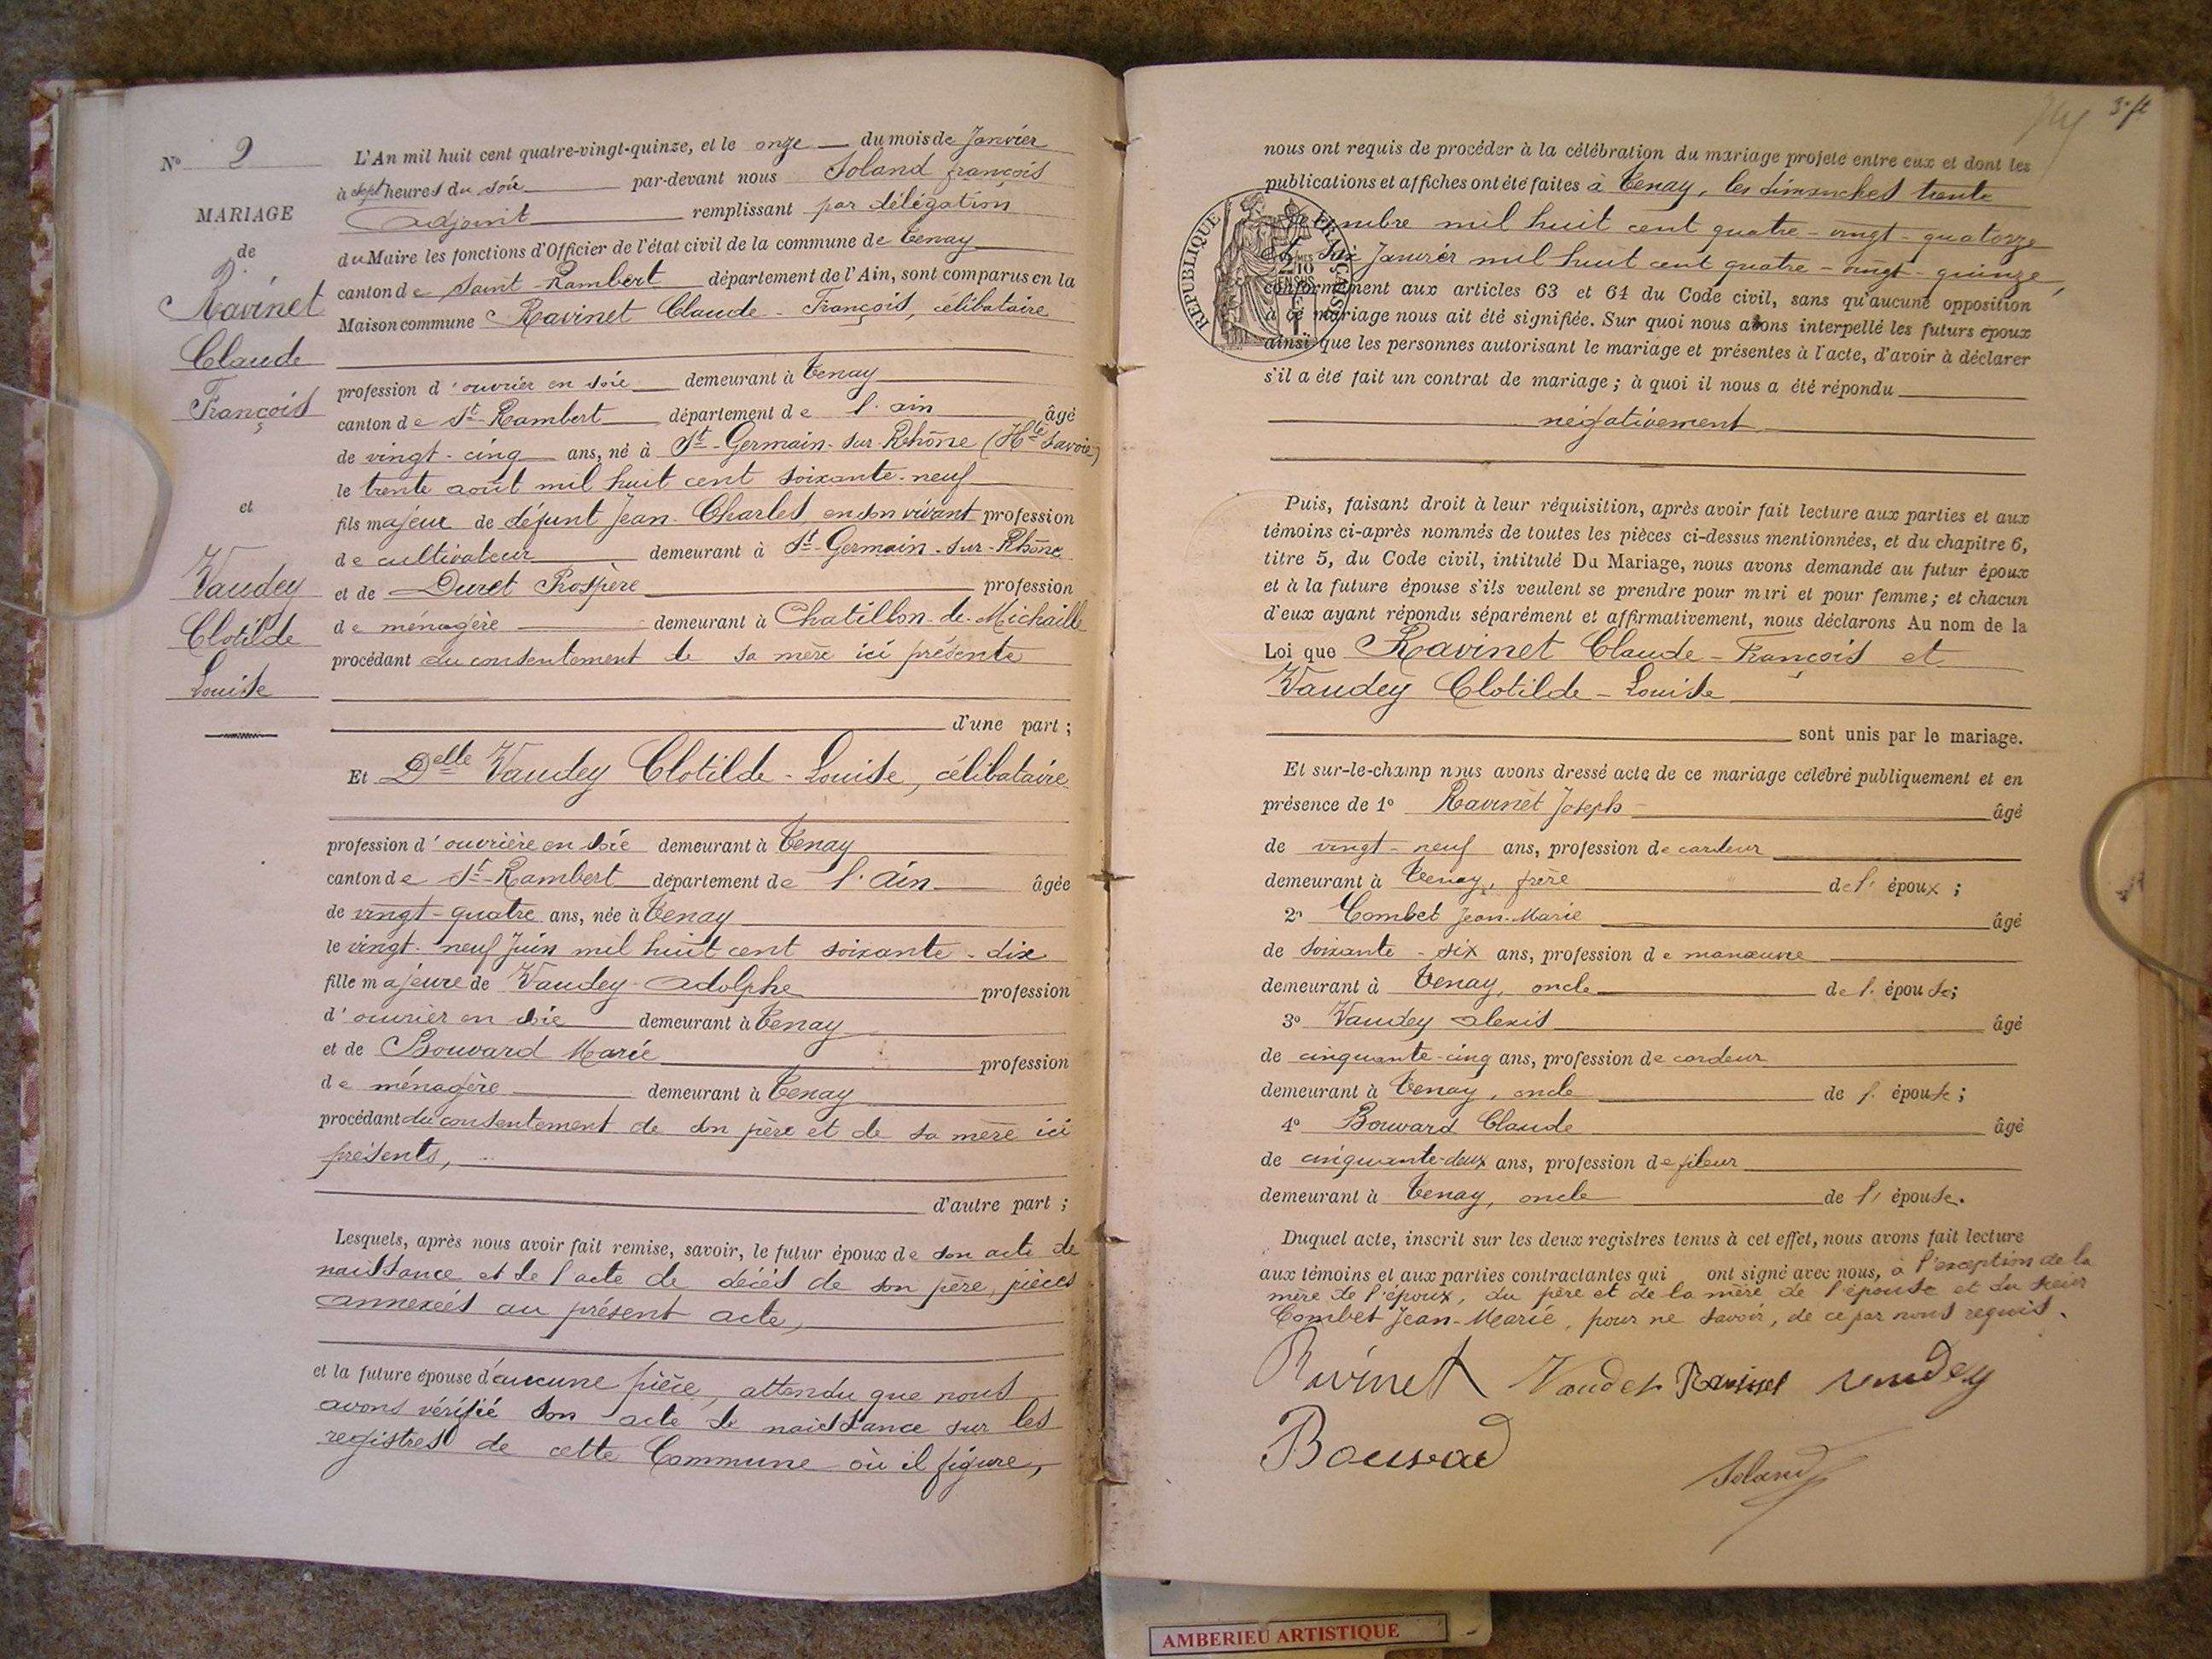 N° 2
MARIAGE
de
Ravinet
Claude
François
et
Vaudey
Clotilde
Louise
L'An mil huit cent quatre-vingt-quinze, et le onze du mois de Janvier
à sept heures du soir par-devant nous Soland françois
adjoint remplissant par délégation
du Maire les fonctions d'Officier de l'état civil de la commune de Tenay
canton de Saint-Rambert département de l'Ain, sont comparus en la
Maison commune Ravinet Claude-François, célibataire
profession d'ouvrier en soie demeurant à Tenay
canton de St-Rambert département de l'ain âgé
de vingt-cinq ans, né à St-Germain-sur-Rhône (Hte Savoie)
le trente août mil huit cent soixante-neuf
fils majeur de défunt Jean-Charles, en son vivant profession
de cultivateur demeurant à St-Germain-sur-Rhône
et de Duret Prospère profession
de ménagère demeurant à Chatillon-de-Michaille
procédant du consentement de sa mère ici présente
d'une part ;
Et Delle Vaudey Clotilde-Louise, célibataire
profession d'ouvrière en soie demeurant à Tenay
canton de St-Rambert département de l'ain âgée
de vingt-quatre ans, née à Tenay
le vingt-neuf Juin mil huit cent soixante-dix
fille majeure de Vaudey Adolphe profession
d'ouvrier en soie demeurant à Tenay
et de Bouvard Marie profession
de ménagère demeurant à Tenay
procédant du consentement de son père et de sa mère ici
présents,
d'autre part ;
Lesquels, après nous avoir fait remise, savoir, le futur époux de son acte de
naissance et de l'acte de décès de son père, pièces
annexées au présent acte,
et la future épouse d'aucune pièce, attendu que nous
avons vérifié son acte de naissance sur les
registres de cette Commune où il figure,
3e ft
nous ont requis de procéder à la célébration du mariage projeté entre eux et dont les
publications et affiches ont été faites à Tenay, les dimanches trente
Décembre mil huit cent quatre-vingt-quatorze
et six Janvier mil huit cent quatre-vingt-quinze,
conformément aux articles 63 et 64 du Code civil, sans qu'aucune opposition
à ce mariage nous ait été signifiée. Sur quoi nous avons interpellé les futurs époux
ainsi que les personnes autorisant le mariage et présentes à l'acte, d'avoir à déclarer
s'il a été fait un contrat de mariage ; à quoi il nous a été répondu
négativement
RÉPUBLIQUE FRANÇAISE
2/10 EN SUS
Puis, faisant droit à leur réquisition, après avoir fait lecture aux parties et aux
témoins ci-après nommés de toutes les pièces ci-dessus mentionnées, et du chapitre 6,
titre 5, du Code civil, intitulé Du Mariage, nous avons demandé au futur époux
et à la future épouse s'ils veulent se prendre pour mari et pour femme ; et chacun
d'eux ayant répondu séparément et affirmativement, nous déclarons Au nom de la
Loi que Ravinet Claude-François et
Vaudey Clotilde-Louise
sont unis par le mariage.
Et sur-le-champ nous avons dressé acte de ce mariage célébré publiquement et en
présence de 1° Ravinet Joseph âgé
de vingt-neuf ans, profession de cardeur
demeurant à Tenay, frère de l'époux ;
2° Combet Jean-Marie âgé
de soixante-six ans, profession de manœuvre
demeurant à Tenay, oncle de l'épouse ;
3° Vaudey Alexis âgé
de cinquante-cinq ans, profession de cardeur
demeurant à Tenay, oncle de l'épouse ;
4° Bouvard Claude âgé
de cinquante-deux ans, profession de fileur
demeurant à Tenay, oncle de l'épouse.
Duquel acte, inscrit sur les deux registres tenus à cet effet, nous avons fait lecture
aux témoins et aux parties contractantes qui ont signé avec nous, à l'exception de la
mère de l'époux, du père et de la mère de l'épouse et du sieur
Combet Jean-Marie, pour ne savoir, de ce par nous requis.
Ravinet Vaudey Ravinet vaudey
Bouvard
Soland
AMBERIEU ARTISTIQUE